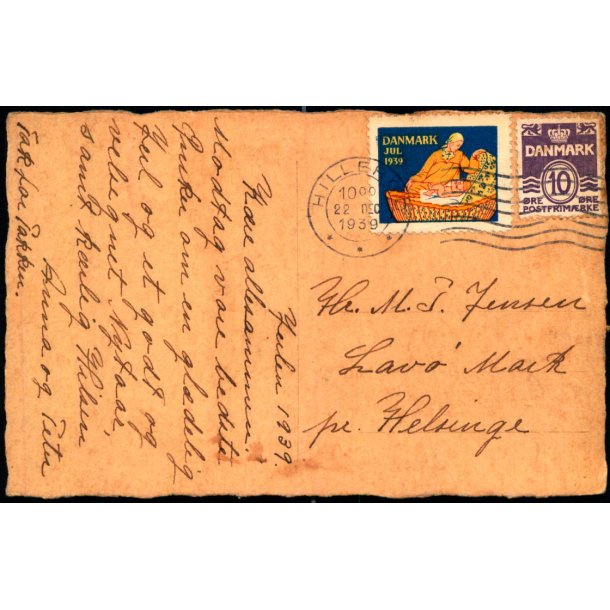 Julen 1939.
Kære allesammen.
Modtag vore bedste
Ønske om en glædelig
Jul og et godt og
velsignet Nytaar,
samt kærlig Hilsen
Anna og Peter
Tak for Pakken.
DANMARK
JUL
1939
HILLERØ
1000
22 DEC
1939
DANMARK
10
ØRE ØRE
POSTFRIMÆRKE
Hr. M. P. Jensen
Lavø Mark
pr. Helsinge